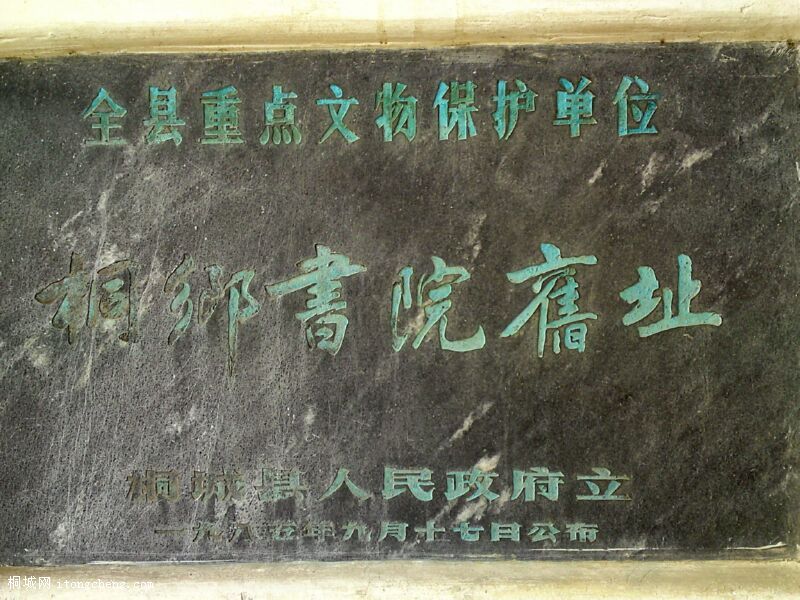 全县重点文物保护单位
桐鄉書院舊址
桐城县人民政府立
一九八五年九月十七日公布
桐城网 itongcheng.com